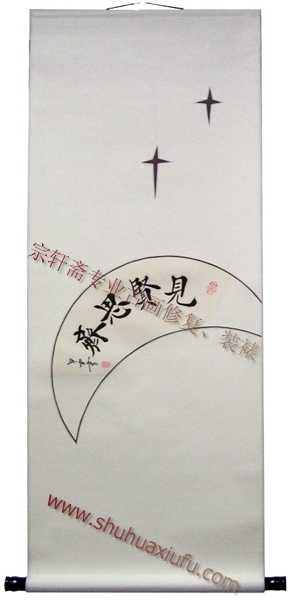 見賢思齊
宗轩斋专业书画修复、装裱
www.shuhuaxiufu.com